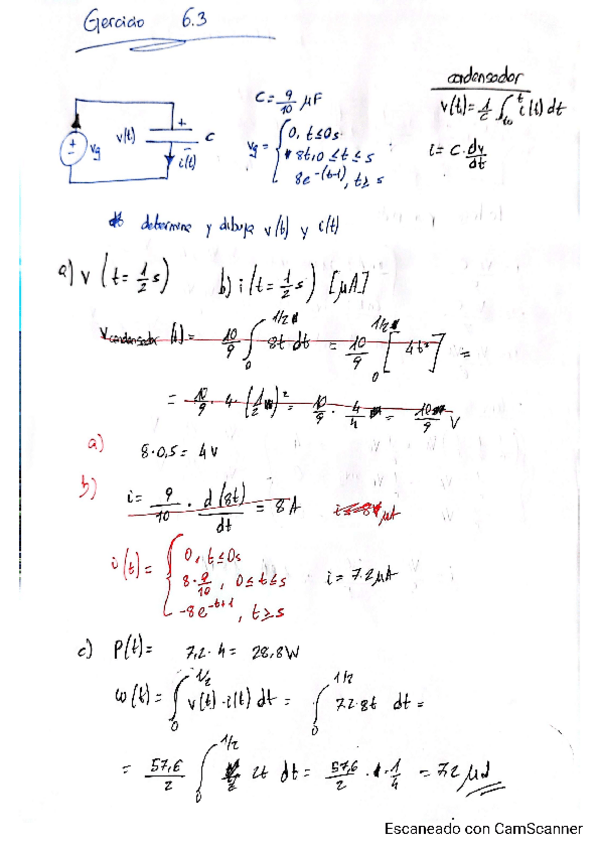 Ejercicio 6.3
condensador
C = 9/10 μF
v(t) = 1/c ∫ t0 t i(t) dt
v(t)
C
vg
i(t)
vg = { 0, t≤0s
8t, 0≤t≤s
8e^-(t-1), t≥s
i = c · dv/dt
determina y dibuja v(t) y i(t)
a) v (t = 1/2 s) b) i (t = 1/2 s) [μA]
Vcondensador (t) = 10/9 ∫ 0 1/2 8t dt = 10/9 0 1/2 [4t²] =
= 10/9 · 4 · (1/2)² = 10/9 · 4/4 = 10/9 V
a) 8·0,5 = 4V
b) i = 9/10 · d(8t)/dt = 8A
i(t) = { 0, t≤0s
8·9/10, 0≤t≤s
-8e^-t+1, t≥s
i = 7.2 μA
c) P(t) = 7,2·4 = 28,8W
ω(t) = ∫ 0 1/2 v(t)·i(t) dt = ∫ 0 1/2 7.2·8t dt =
= 57,6/2 ∫ 0 1/2 2t dt = 57,6/2 · 1/4 = 7.2 μJ
Escaneado con CamScanner